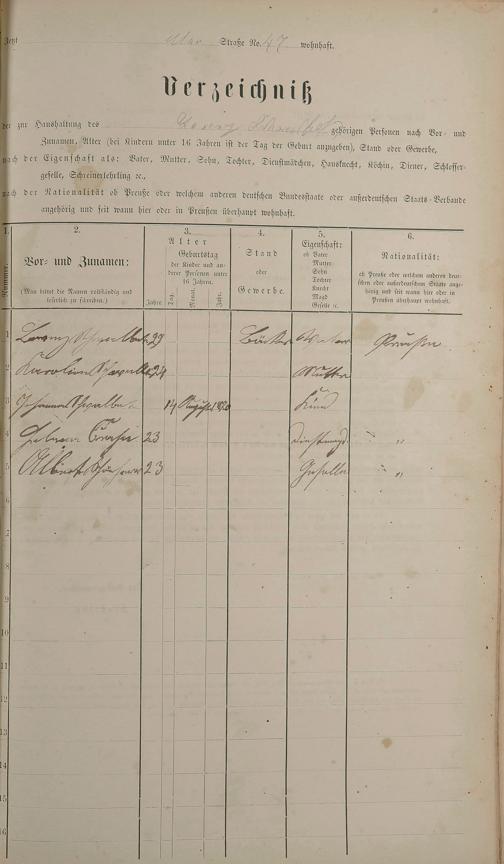 Jetzt Straße No. 47. wohnhaft.
Verzeichniß
der zur Haushaltung des gehörigen Personen nach Vor- und
Zunamen, Alter (bei Kindern unter 16 Jahren ist der Tag der Geburt anzugeben), Stand oder Gewerbe,
nach der Eigenschaft als: Vater, Mutter, Sohn, Tochter, Dienstmädchen, Hausknecht, Köchin, Diener, Schlosser-
geselle, Schreinerlehrling ꝛc.,
nach der Nationalität ob Preuße oder welchem anderen deutschen Bundesstaate oder außerdeutschen Staats-Verbande
angehörig und seit wann hier oder in Preußen überhaupt wohnhaft.
1. 2. 3. 4. 5. 6.
Nummer.
Vor- und Zunamen:
(Man bittet die Namen vollständig und
leserlich zu schreiben.)
Alter
Geburtstag
der Kinder und an-
derer Personen unter
16 Jahren.
Jahre Tag. Monat. Jahr.
Stand
oder
Gewerbe.
Eigenschaft:
ob Vater
Mutter
Sohn
Tochter
Knecht
Magd
Geselle ꝛc.
Nationalität:
ob Preuße oder welchem anderen deut-
schen oder außerdeutschen Staate ange-
hörig und seit wann hier oder in
Preußen überhaupt wohnhaft.
1 Lorenz 29 Bäcker Vater Preußen
2 Karolina 24 Mutter
3 Johannes 14 August Kind
4 23 Dienstmagd "
5 Albert 23 Geselle "
6
7
8
9
10
11
12
13
14
15
16